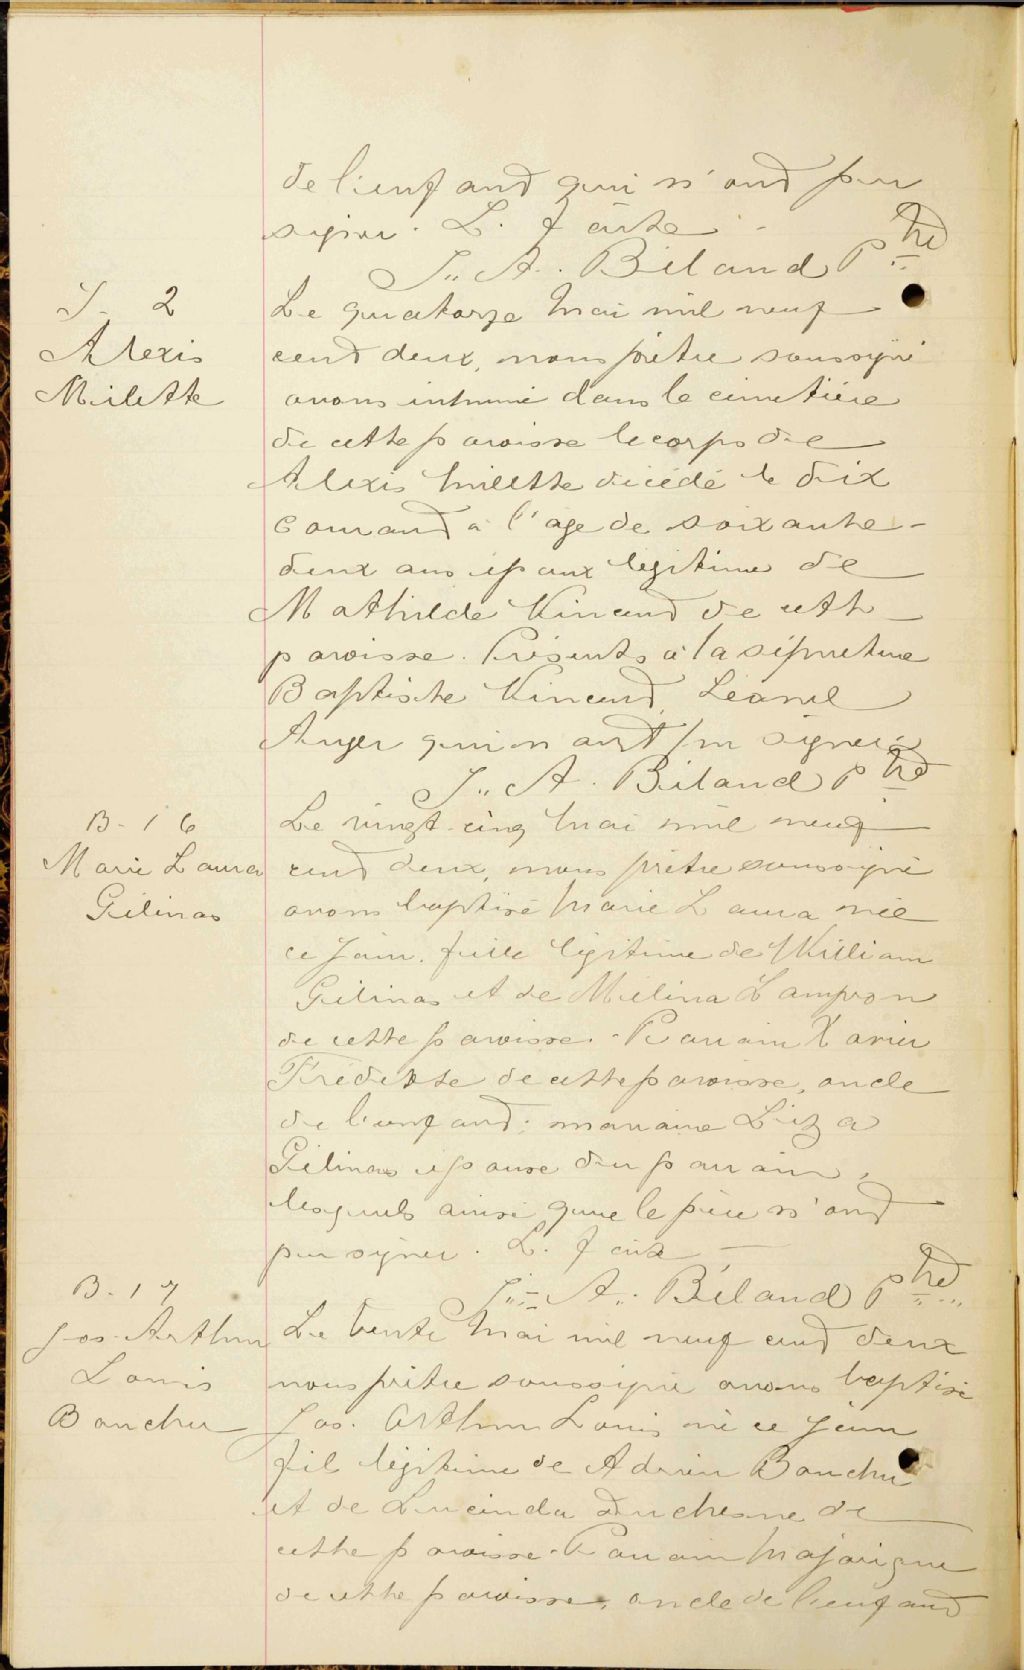 de l'enfant qui n'ont pu
signer. L. faite
J. A. Béland Ptre
S. 2
Alexis
Milette
Le quatorze mai mil neuf
cent deux, nous prêtre soussigné
avons inhumé dans le cimetière
de cette paroisse le corps de
Alexis Milette décédé le dix
courant à l'âge de soixante-
deux ans époux légitime de
Mathilde Vincent de cette
paroisse. Présents à la sépulture
Baptiste Vincent, Léanel
Auger qui n'ont pu signer
J. A. Béland Ptre
B. 16
Marie Laura
Gélinas
Le vingt-cinq mai mil neuf
cent deux, nous prêtre soussigné
avons baptisé Marie Laura née
ce jour, fille légitime de William
Gélinas et de Mélina Lampron
de cette paroisse. Parrain Xavier
Frédette de cette paroisse, oncle
de l'enfant; marraine Liza
Gélinas épouse du parrain,
lesquels ainsi que le père n'ont
pu signer. L. faite
J. A. Béland Ptre
B. 17
Jos. Arthur
Louis
Boucher
Le trente mai mil neuf cent deux
nous prêtre soussigné avons baptisé
Jos. Arthur Louis né ce jour
fil légitime de Adrien Boucher
et de Lucinda Duchesne de
cette paroisse. Parrain Majorique
de cette paroisse, oncle de l'enfant